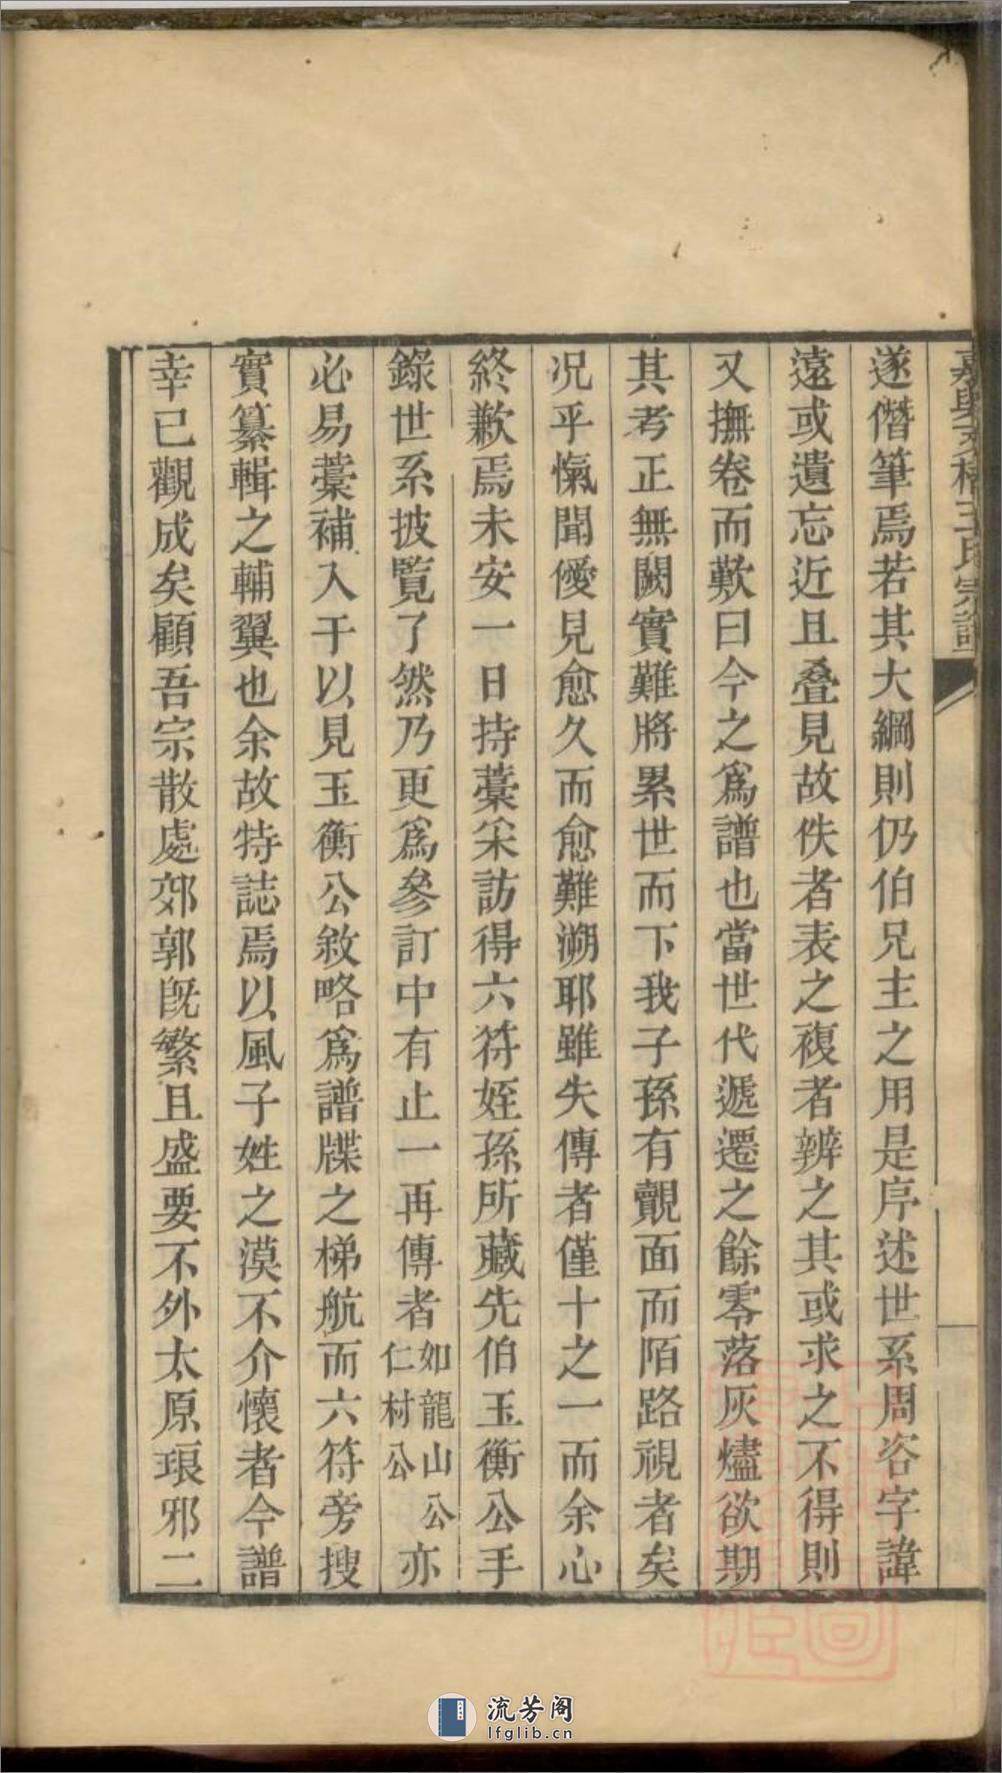 嘉興 橋王氏宗譜
遂僭筆焉若其大綱則仍伯兄主之用是序述世系周咨字諱
遠或遺忘近且叠見故佚者表之複者辨之其或求之不得則
又撫卷而歎曰今之爲譜也當世代遞遷之餘零落灰燼欲期
其考正無闕實難將累世而下我子孫有覿面而陌路視者矣
況乎愾聞僾見愈久而愈難溯耶雖失傳者僅十之一而余心
終歉焉未安一日持藁宋訪得六符姪孫所藏先伯玉衡公手
錄世系披覽了然乃更爲參訂中有止一再傳者如龍山公仁村公亦
必易藁補入于以見玉衡公敘略爲譜牒之梯航而六符旁搜
實纂輯之輔翼也余故特誌焉以風子姓之漠不介懷者今譜
幸已觀成矣顧吾宗散處郊郭旣繁且盛要不外太原琅邪二
流芳阁
lfglib.cn